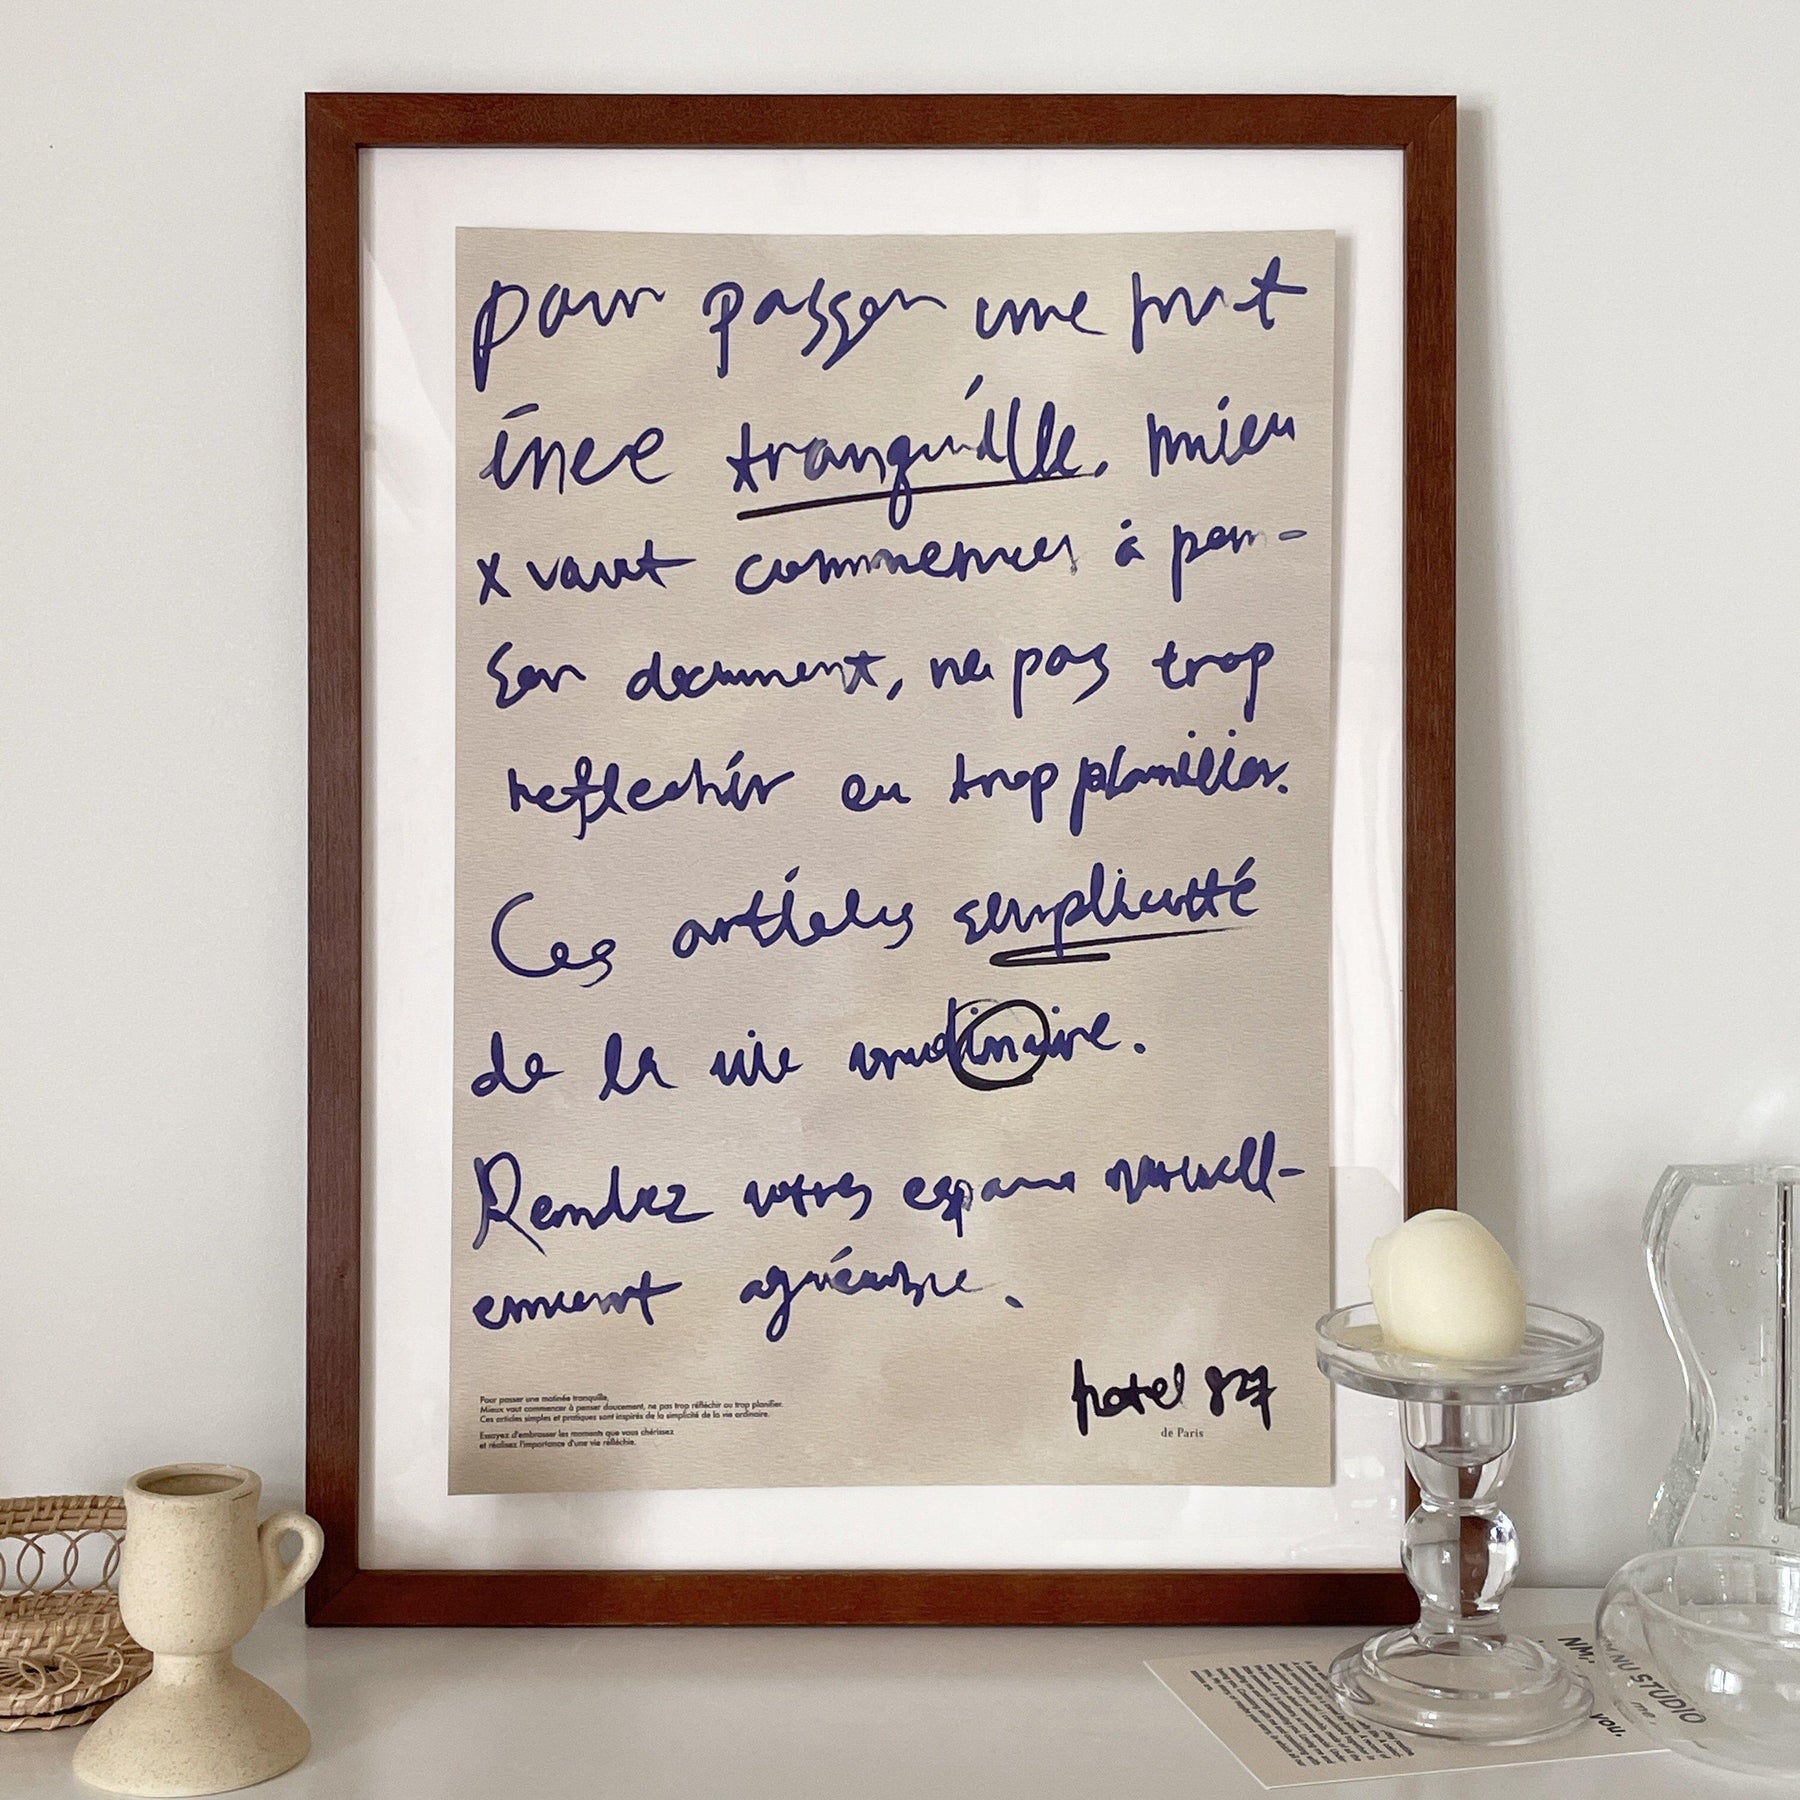 pour passer une mat
inée tranquille. mieu
x vaut commencer à pen-
ser document, ne pas trop
reflechir ou trop planifier.
Ces articles simplicité
de la vie ordinaire.
Rendez votres espace
ement agréable.
hotel 827
de Paris
Pour passer une matinée tranquille,
Mieux vaut commencer à penser doucement, ne pas trop réfléchir ou trop planifier.
Ces articles simples et pratiques sont inspirés de la simplicité de la vie ordinaire.
Essayez d'embrasser les moments que vous chérissez
et réalisez l'importance d'une vie réfléchie.
NU STUDIO
me,
you.